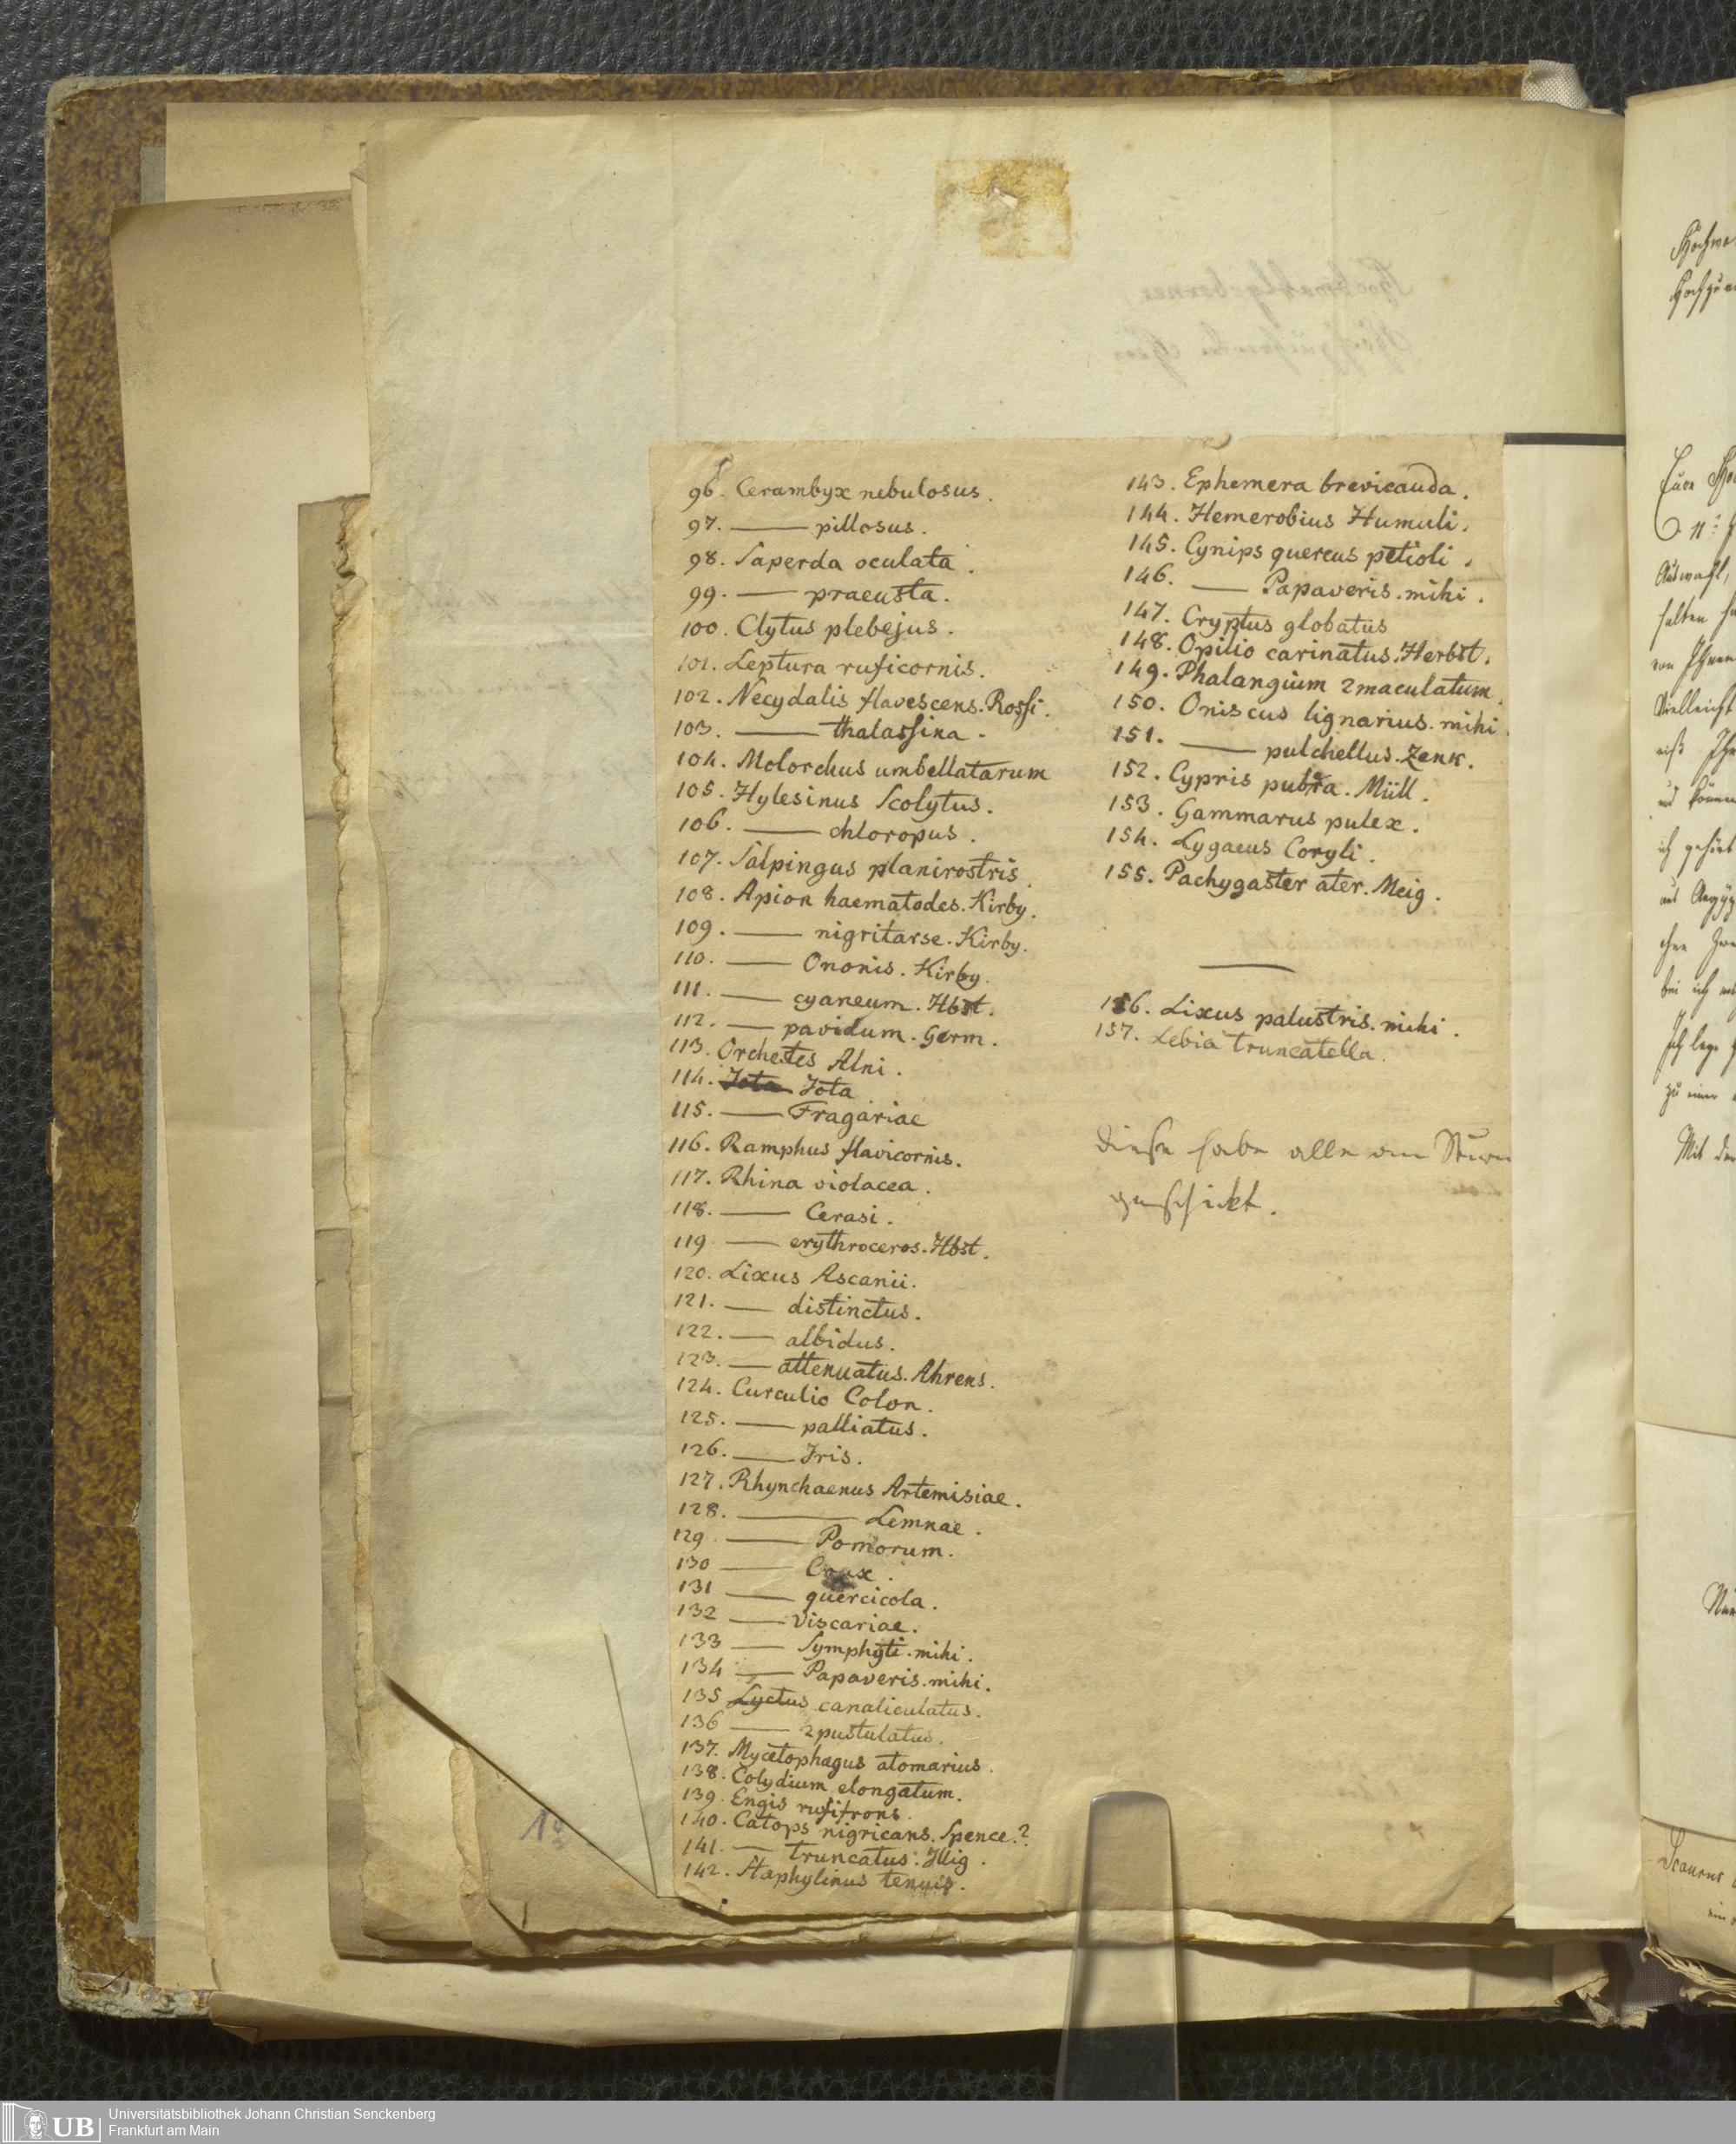 96. Cerambyx nebulosus.
97. —— pillosus.
98. Saperda oculata.
99. —— praeusta.
100. Clytus plebejus.
101. Leptura ruficornis.
102. Necydalis flavescens. Rossi.
103. —— thalassina.
104. Molorchus umbellatarum
105. Hylesinus Scolytus.
106. —— chloropus.
107. Salpingus planirostris.
108. Apion haematodes. Kirby.
109. —— nigritarse. Kirby.
110. —— Ononis. Kirby.
111. —— cyaneum. Hbst.
112. —— pavidum. Germ.
113. Orchestes Alni.
114. Jota Jota
115. —— Fragariae
116. Ramphus flavicornis.
117. Rhina violacea.
118. —— Cerasi.
119. —— erythroceros. Hbst.
120. Lixus Ascanii.
121. —— distinctus.
122. —— albidus.
123. —— attenuatus. Ahrens.
124. Curculio Colon.
125. —— palliatus.
126. —— Iris.
127. Rhynchaenus Artemisiae.
128. —— Lemnae.
129. —— Pomorum.
130 —— Crux.
131 —— quercicola.
132 —— Viscariae.
133 —— Symphyti. mihi.
134 —— Papaveris. mihi.
135 Lyctus canaliculatus.
136 —— 2pustulatus.
137. Mycetophagus atomarius.
138. Colydium elongatum.
139. Engis rufifrons.
140. Catops nigricans. Spence.?
141. —— truncatus. Illig.
142. Staphylinus tenuis.
143. Ephemera brevicauda.
144. Hemerobius Humuli.
145. Cynips quercus petioli.
146. —— Papaveris. mihi.
147. Cryptus globatus
148. Opilio carinatus. Herbst.
149. Phalangium 2maculatum.
150. Oniscus lignarius. mihi.
151. —— pulchellus. Zenk.
152. Cypris pubera. Müll.
153. Gammarus pulex.
154. Lygaeus Coryli.
155. Pachygaster ater. Meig.
156. Lixus palustris. mihi.
157. Lebia truncatella.
Diese habe alle an Sturm
geschickt.
Euer
Auswahl,
halten
von Ihnen
Vielleicht
ich
zu einer
Mit
Scaurus
UB
Universitätsbibliothek Johann Christian Senckenberg
Frankfurt am Main